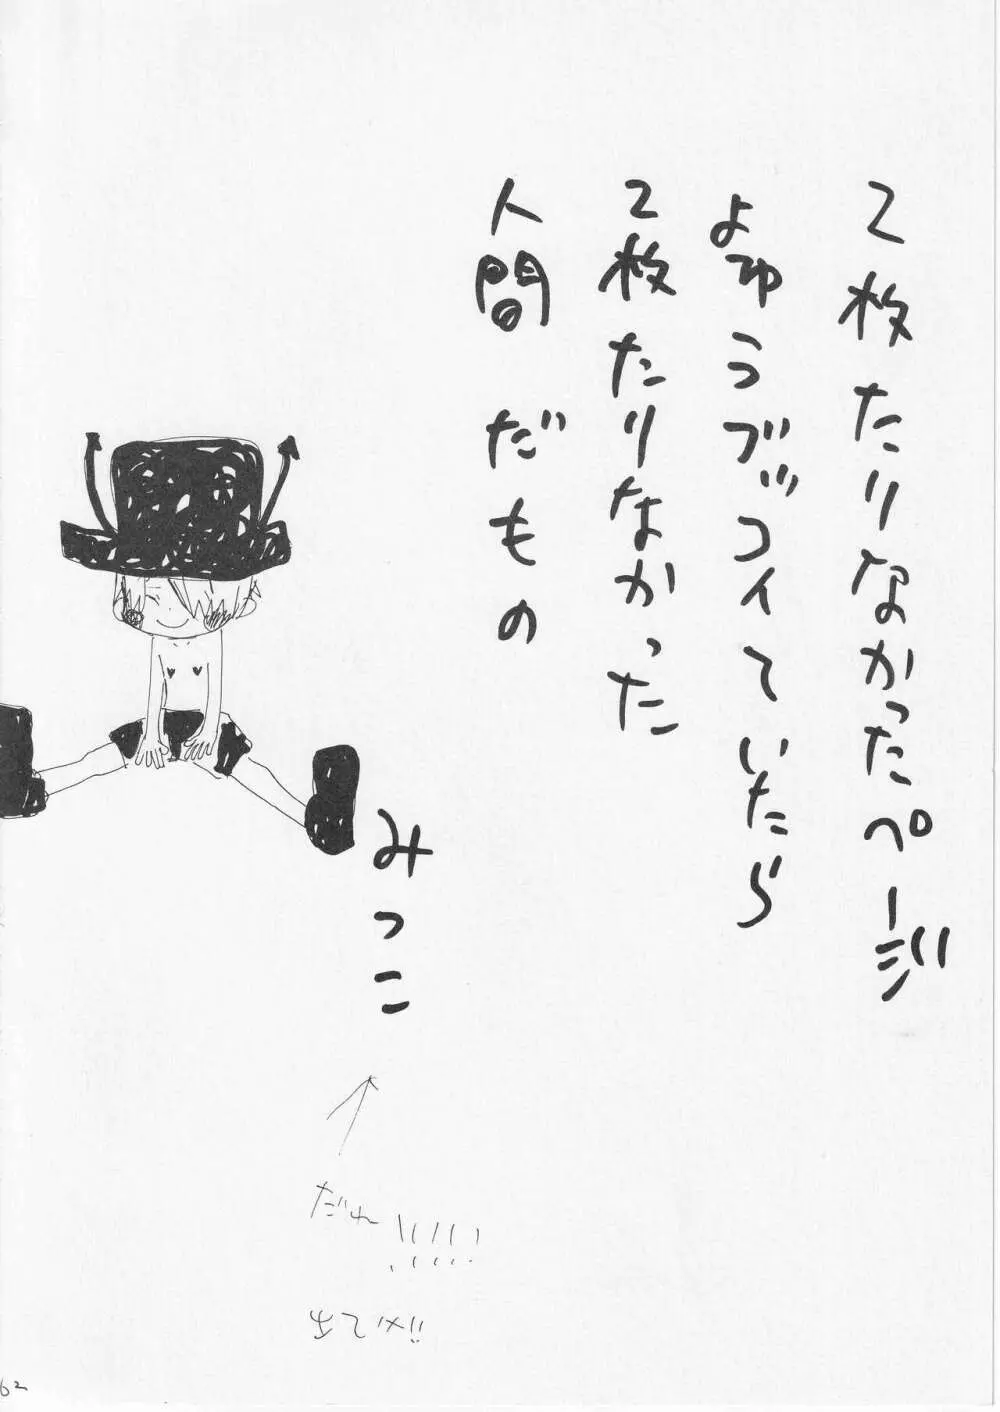 2枚たりなかったページ
よゆうブッコイていたら
2枚たりなかった
人間だもの
みつこ
だれ!!!!!
出てい×!!
62